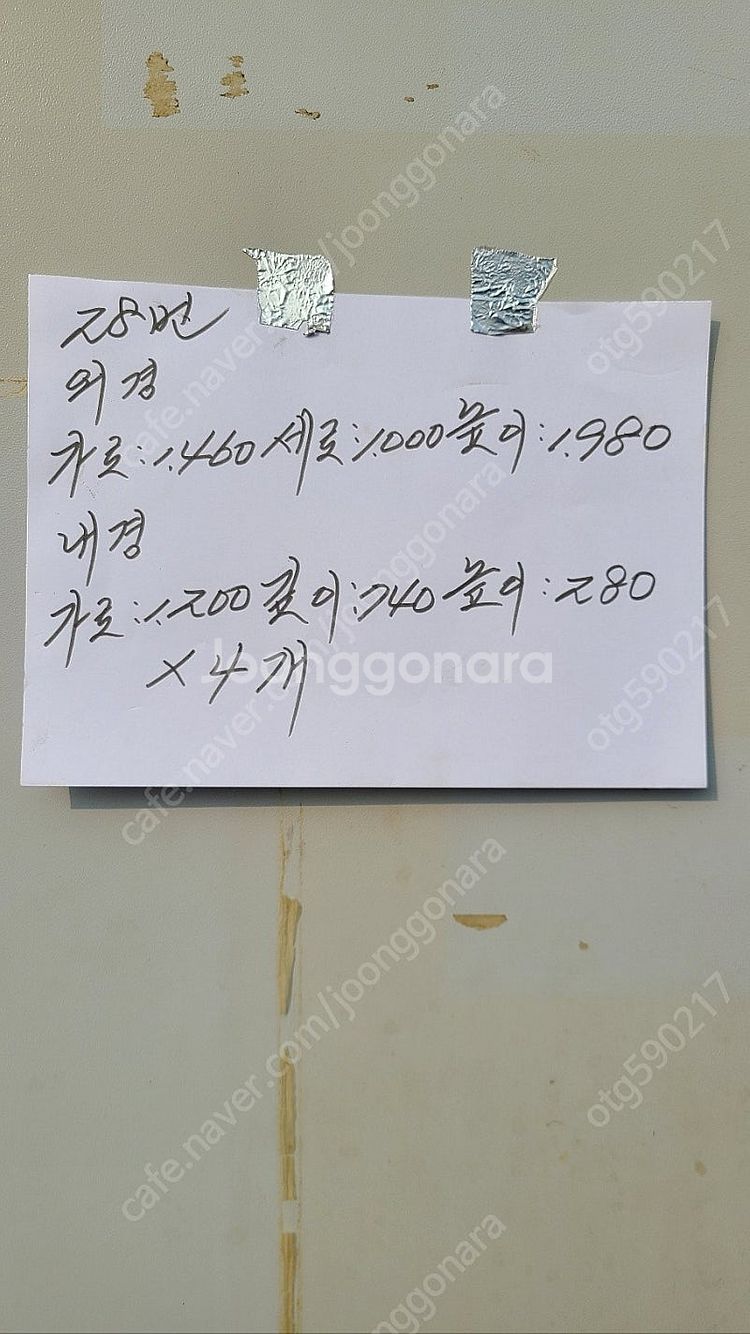 28번
외경
가로:1.460 세로:1.000 높이:1.980
내경
가로:1.200 깊이:740 높이:280
×4개
Joonggonara
cafe.naver.com/joonggonara
otg590217
cafe.naver.com/joonggonara
otg590217
cafe.naver.com/joonggonara
otg590217